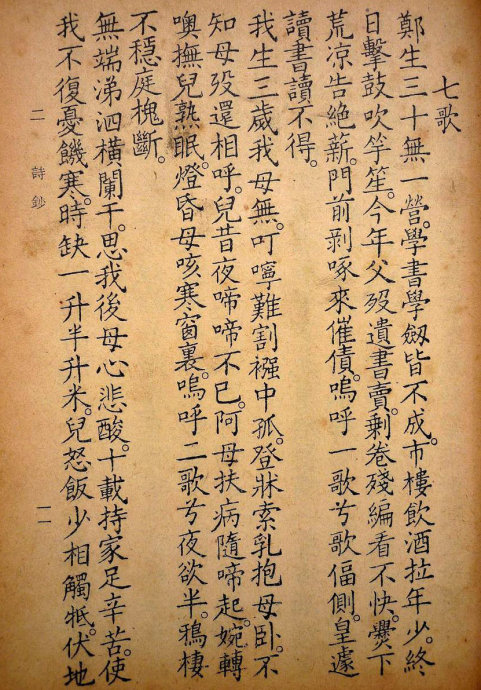 七歌
鄭生三十無一營。學書學劒皆不成。市樓飲酒拉年少。終
日擊鼓吹竽笙。今年父歿遺書賣。剩卷殘編看不快。爨下
荒凉告絕薪。門前剥啄來催債。嗚呼一歌兮歌偪側。皇遽
讀書讀不得。
我生三歲我母無。叮嚀難割襁中孤。登牀索乳抱母臥。不
知母歿還相呼。兒昔夜啼啼不已。阿母扶病隨啼起。婉轉
噢撫兒熟眠。燈昏母咳寒窗裏。嗚呼二歌兮夜欲半。鴉棲
不穩庭槐斷。
無端涕泗橫闌干。思我後母心悲酸。十載持家足辛苦。使
我不復憂饑寒。時缺一升半升米。兒怒飯少相觸牴。伏地
二 詩鈔 一一